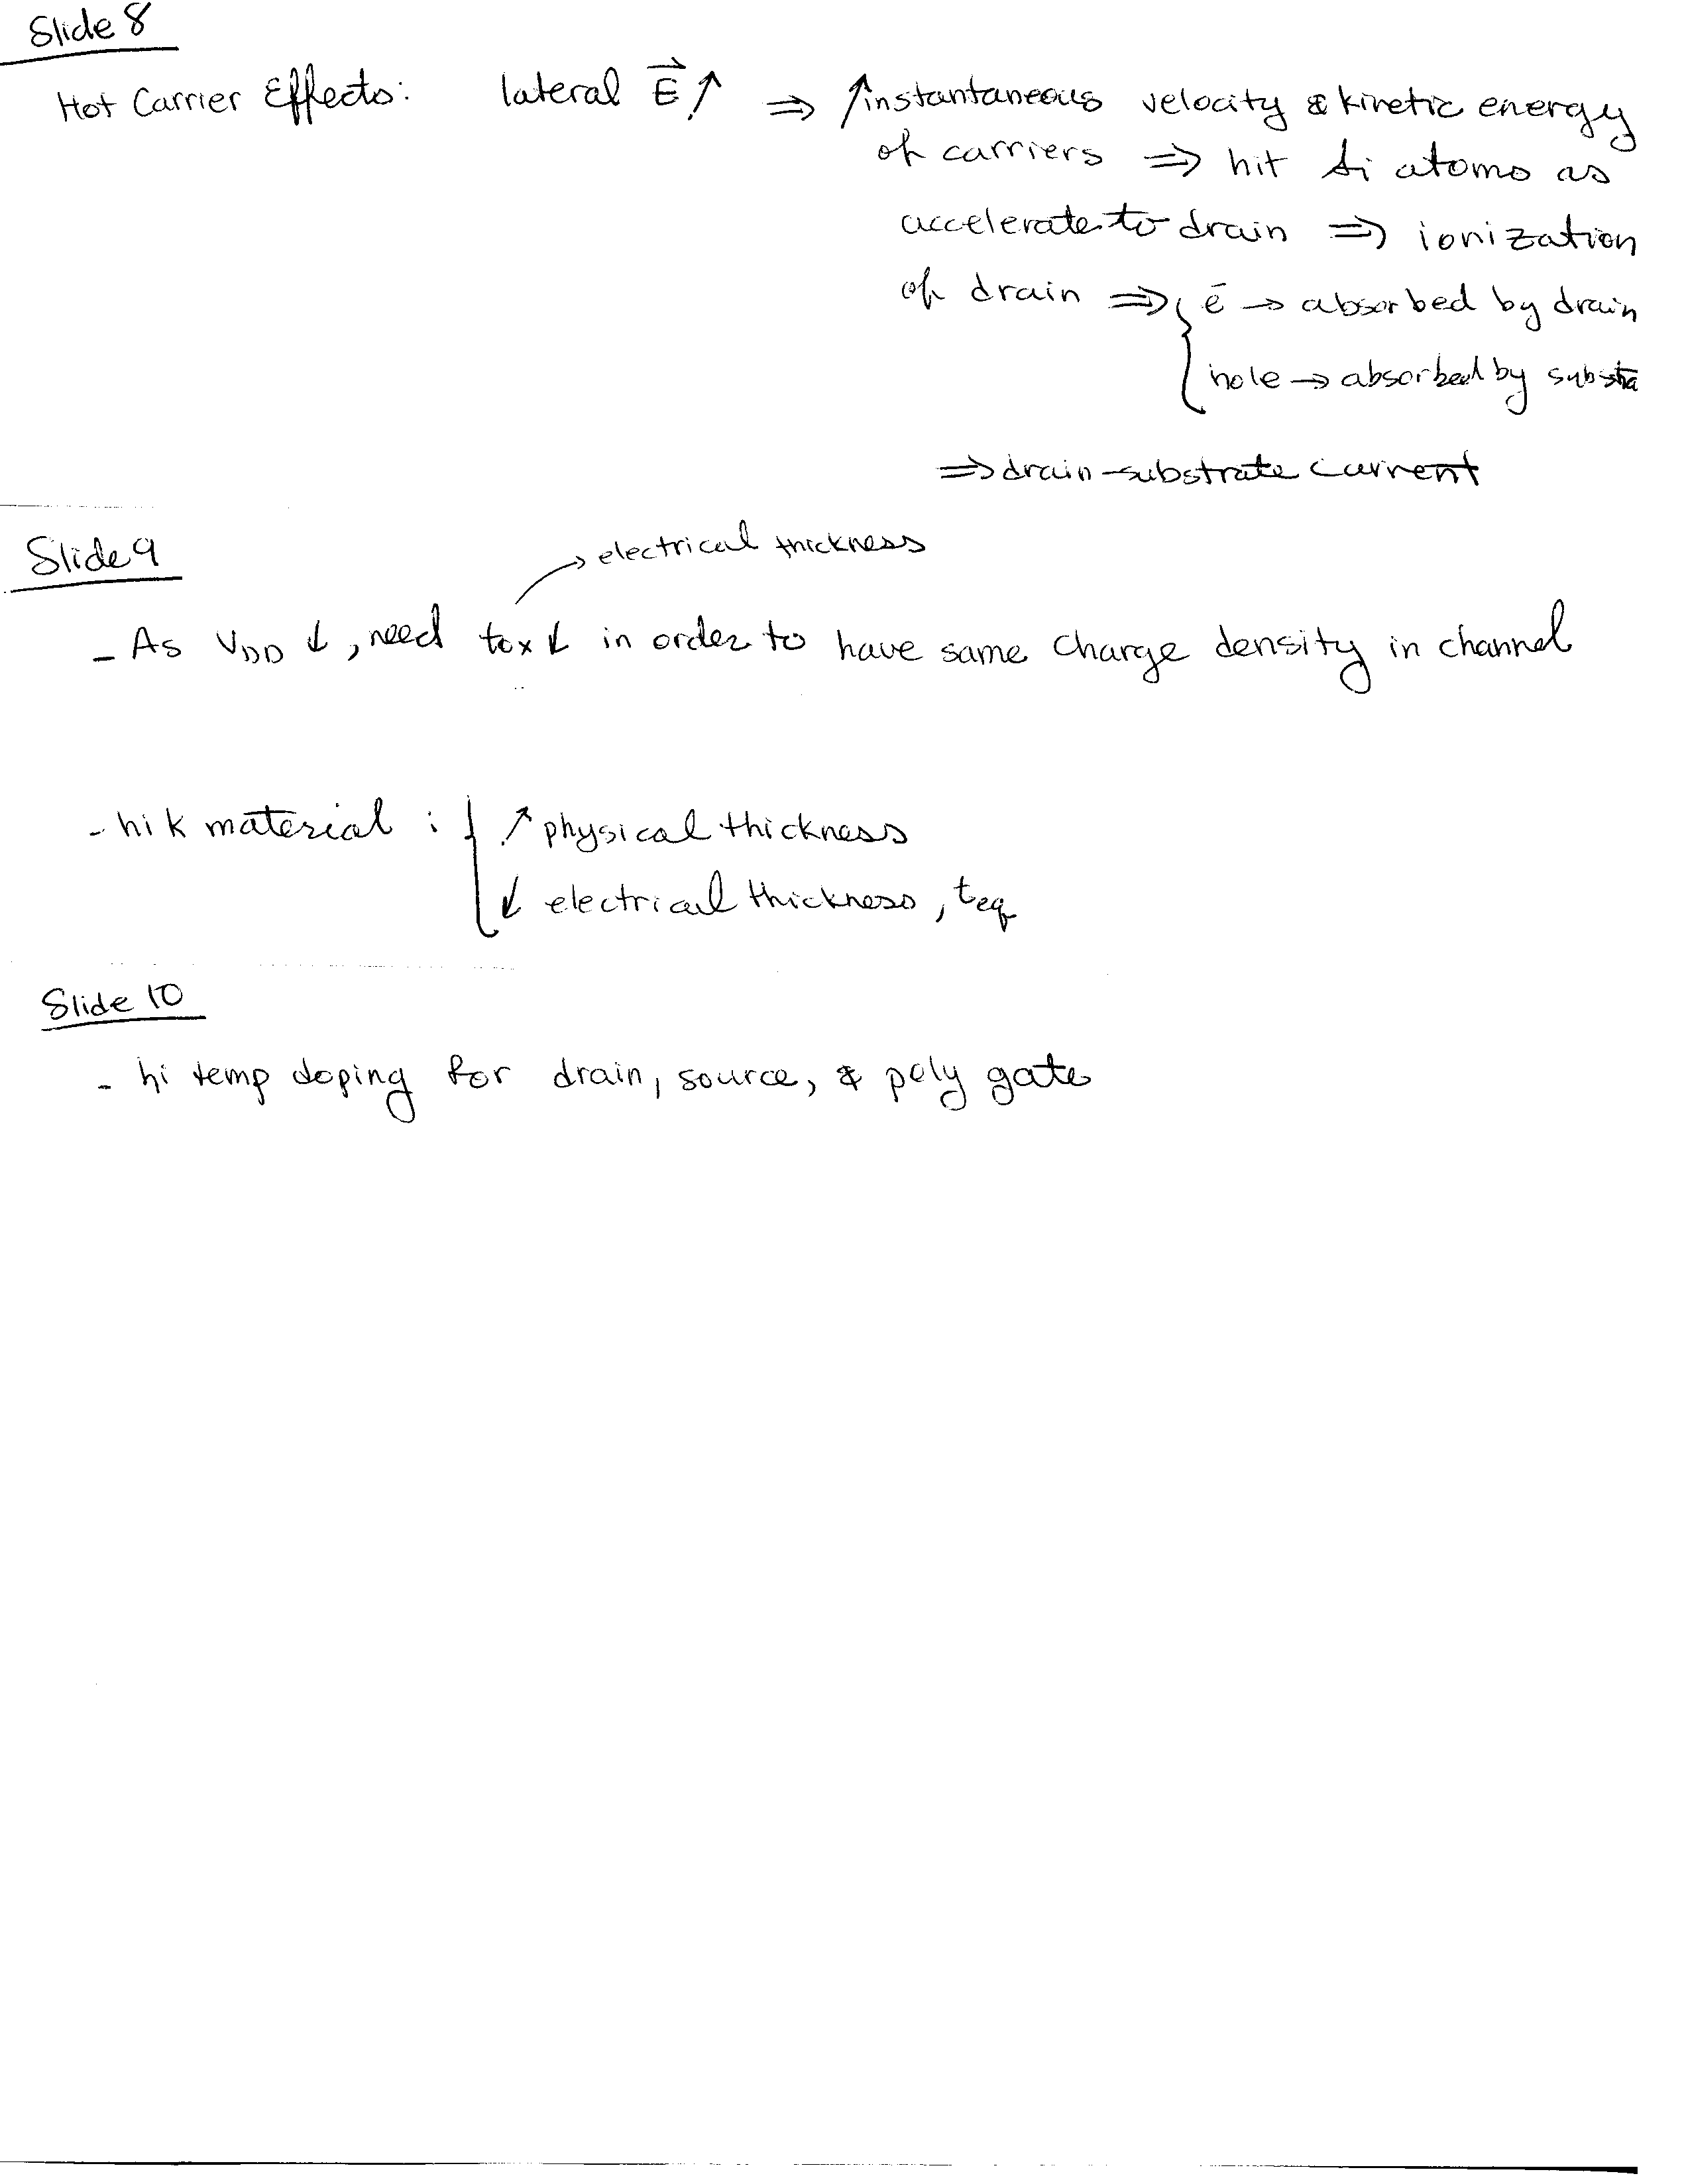 Slide 8
Hot Carrier Effects: lateral E⃗ ↑ ⇒ ↑ instantaneous velocity & kinetic energy
of carriers ⇒ hit Si atoms as
accelerate to drain ⇒ ionization
of drain ⇒ { e⁻ → absorbed by drain
hole → absorbed by substra
⇒ drain-substrate current
Slide 9
→ electrical thickness
- As VDD ↓, need tox ↓ in order to have same charge density in channel
- hi k material : { ↑ physical thickness
↓ electrical thickness, teq
Slide 10
- hi temp doping for drain, source, & poly gate